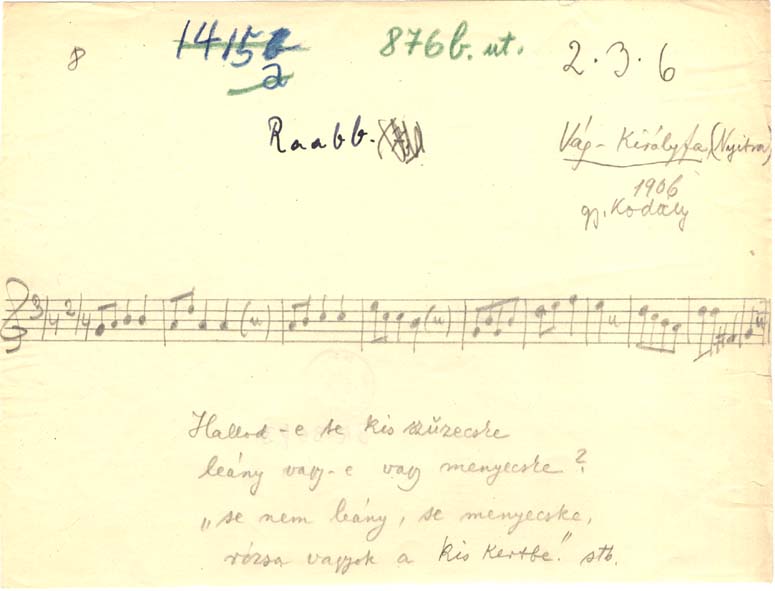 8
1415 a
876 b. ut.
2.3.6
Raabb.
Vág-Királyfa (Nyitra)
1906
gy. Kodály
3/4 2/4
Hallod-e te kis
leány vagy-e vagy menyecske?
„se nem leány, se menyecske,
rózsa vagyok a kis kertbe." stb.